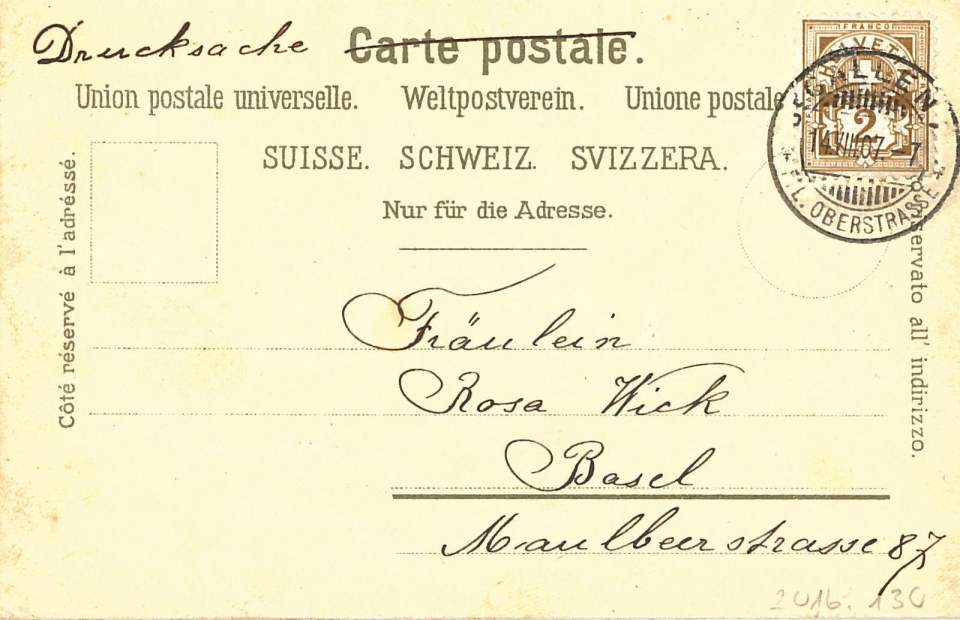 Drucksache Carte postale.
Union postale universelle. Weltpostverein. Unione postale
SUISSE. SCHWEIZ. SVIZZERA.
Nur für die Adresse.
Côté réservé à l'adréssé.
FRANCO
HELVETIA
2
ST. GALLEN
14.VIII.07.-7
FIL. OBERSTRASSE
servato all' indirizzo.
Fräulein
Rosa Wick
Basel
Maulbeerstrasse 87
2016. 130